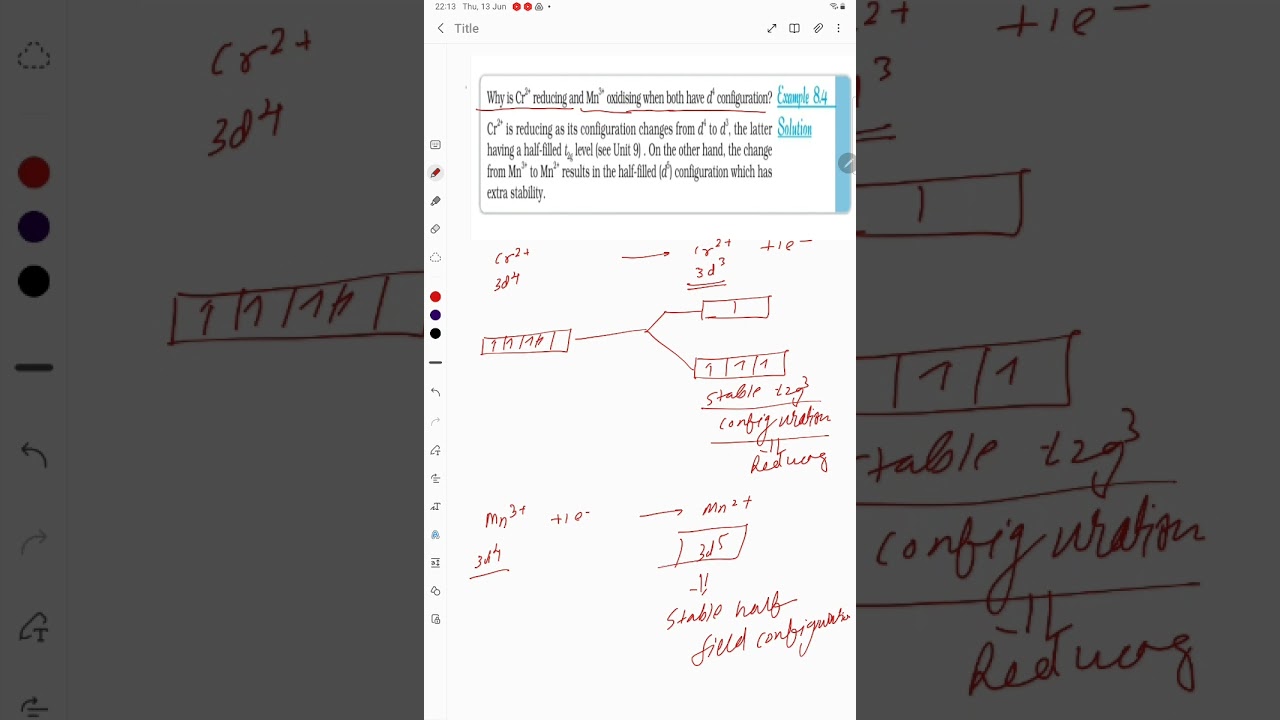 22:13 Thu, 13 Jun
Title
Why is Cr²⁺ reducing and Mn³⁺ oxidising when both have d⁴ configuration? Example 8.4
Cr²⁺ is reducing as its configuration changes from d⁴ to d³, the latter Solution
having a half-filled t₂g level (see Unit 9) . On the other hand, the change
from Mn³⁺ to Mn²⁺ results in the half-filled (d⁵) configuration which has
extra stability.
Cr²⁺ → Cr²⁺ +1e⁻
3d⁴ 3d³
1 1 1 1 1
1 1 1
stable t2g³
configuration
Reducog
Mn³⁺ +1e⁻ → Mn²⁺
3d⁴ 3d⁵
stable half
field configuration
Cr²⁺
3d⁴
+1e⁻
3
1
1 1
table t2g³
configuration
Reducog